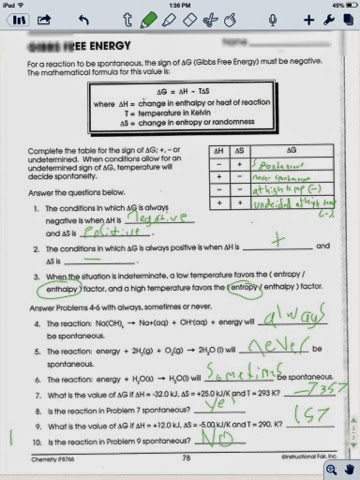 iPad
1:36 PM
49%
GIBBS FREE ENERGY
Name
For a reaction to be spontaneous, the sign of ΔG (Gibbs Free Energy) must be negative.
The mathematical formula for this value is:
ΔG = ΔH – TΔS
where ΔH = change in enthalpy or heat of reaction
T = temperature in Kelvin
ΔS = change in entropy or randomness
Complete the table for the sign of ΔG; +, – or
undetermined. When conditions allow for an
undetermined sign of ΔG, temperature will
decide spontaneity.
ΔH ΔS ΔG
– + spontaneous
+ – never spontaneous
– – at high temp (-)
+ + undecided at high temp (-)
Answer the questions below.
1. The conditions in which ΔG is always
negative is when ΔH is negative
and ΔS is positive.
2. The conditions in which ΔG is always positive is when ΔH is + and
ΔS is —.
3. When the situation is indeterminate, a low temperature favors the ( entropy /
enthalpy ) factor, and a high temperature favors the ( entropy / enthalpy ) factor.
Answer Problems 4-6 with always, sometimes or never.
4. The reaction: Na(OH)s → Na+(aq) + OH-(aq) + energy will always
be spontaneous.
5. The reaction: energy + 2H2(g) + O2(g) → 2H2O (l) will never be
spontaneous.
6. The reaction: energy + H2O(s) → H2O(l) will sometimes be spontaneous.
7. What is the value of ΔG if ΔH = -32.0 kJ, ΔS = +25.0 kJ/K and T = 293 K? -7357
8. Is the reaction in Problem 7 spontaneous? yes
9. What is the value of ΔG if ΔH = +12.0 kJ, ΔS = -5.00 kJ/K and T = 290. K?
10. Is the reaction in Problem 9 spontaneous? NO
Chemistry IF8766
78
©Instructional Fair, Inc.